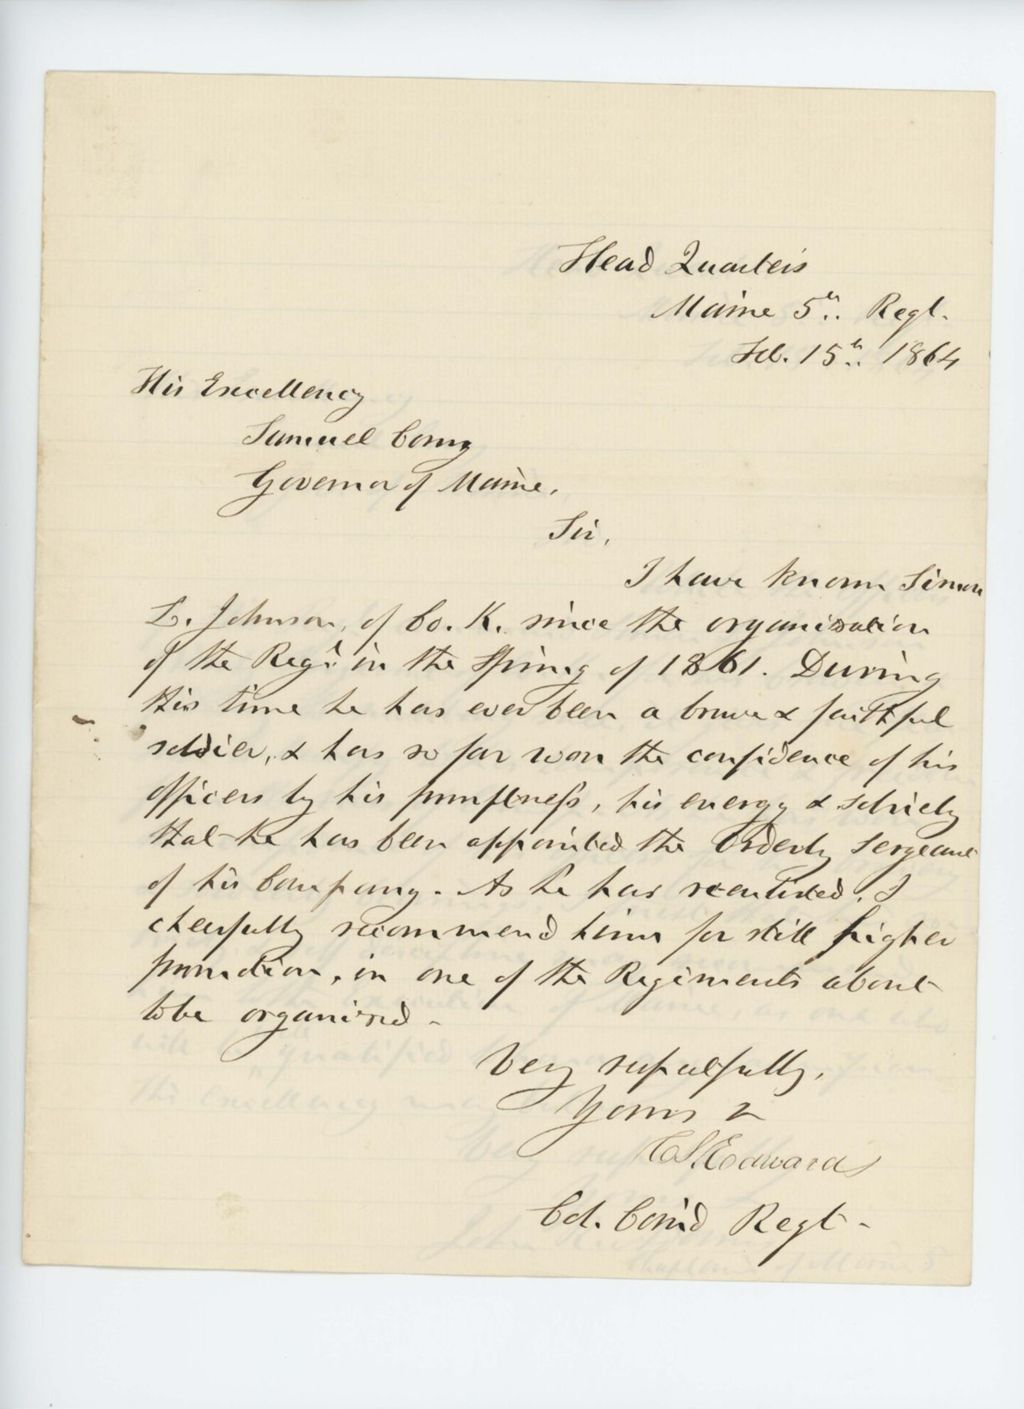 Head Quarters
Maine 5th. Regt.
Feb. 15th. 1864
His Excellency
Samuel Cony
Governor of Maine.
Sir,
I have known Simon
L. Johnson, of Co. K. since the organization
of the Regt. in the Spring of 1861. During
this time he has ever been a brave & faithful
soldier, & has so far won the confidence of his
officers by his promptness, his energy & sobriety
that he has been appointed the Orderly Sergeant
of his Company. As he has reenlisted, I
cheerfully recommend him for still higher
promotion, in one of the Regiments about
to be organized.
Very respectfully,
Yours &
C S Edwards
Col. Com'd Regt.